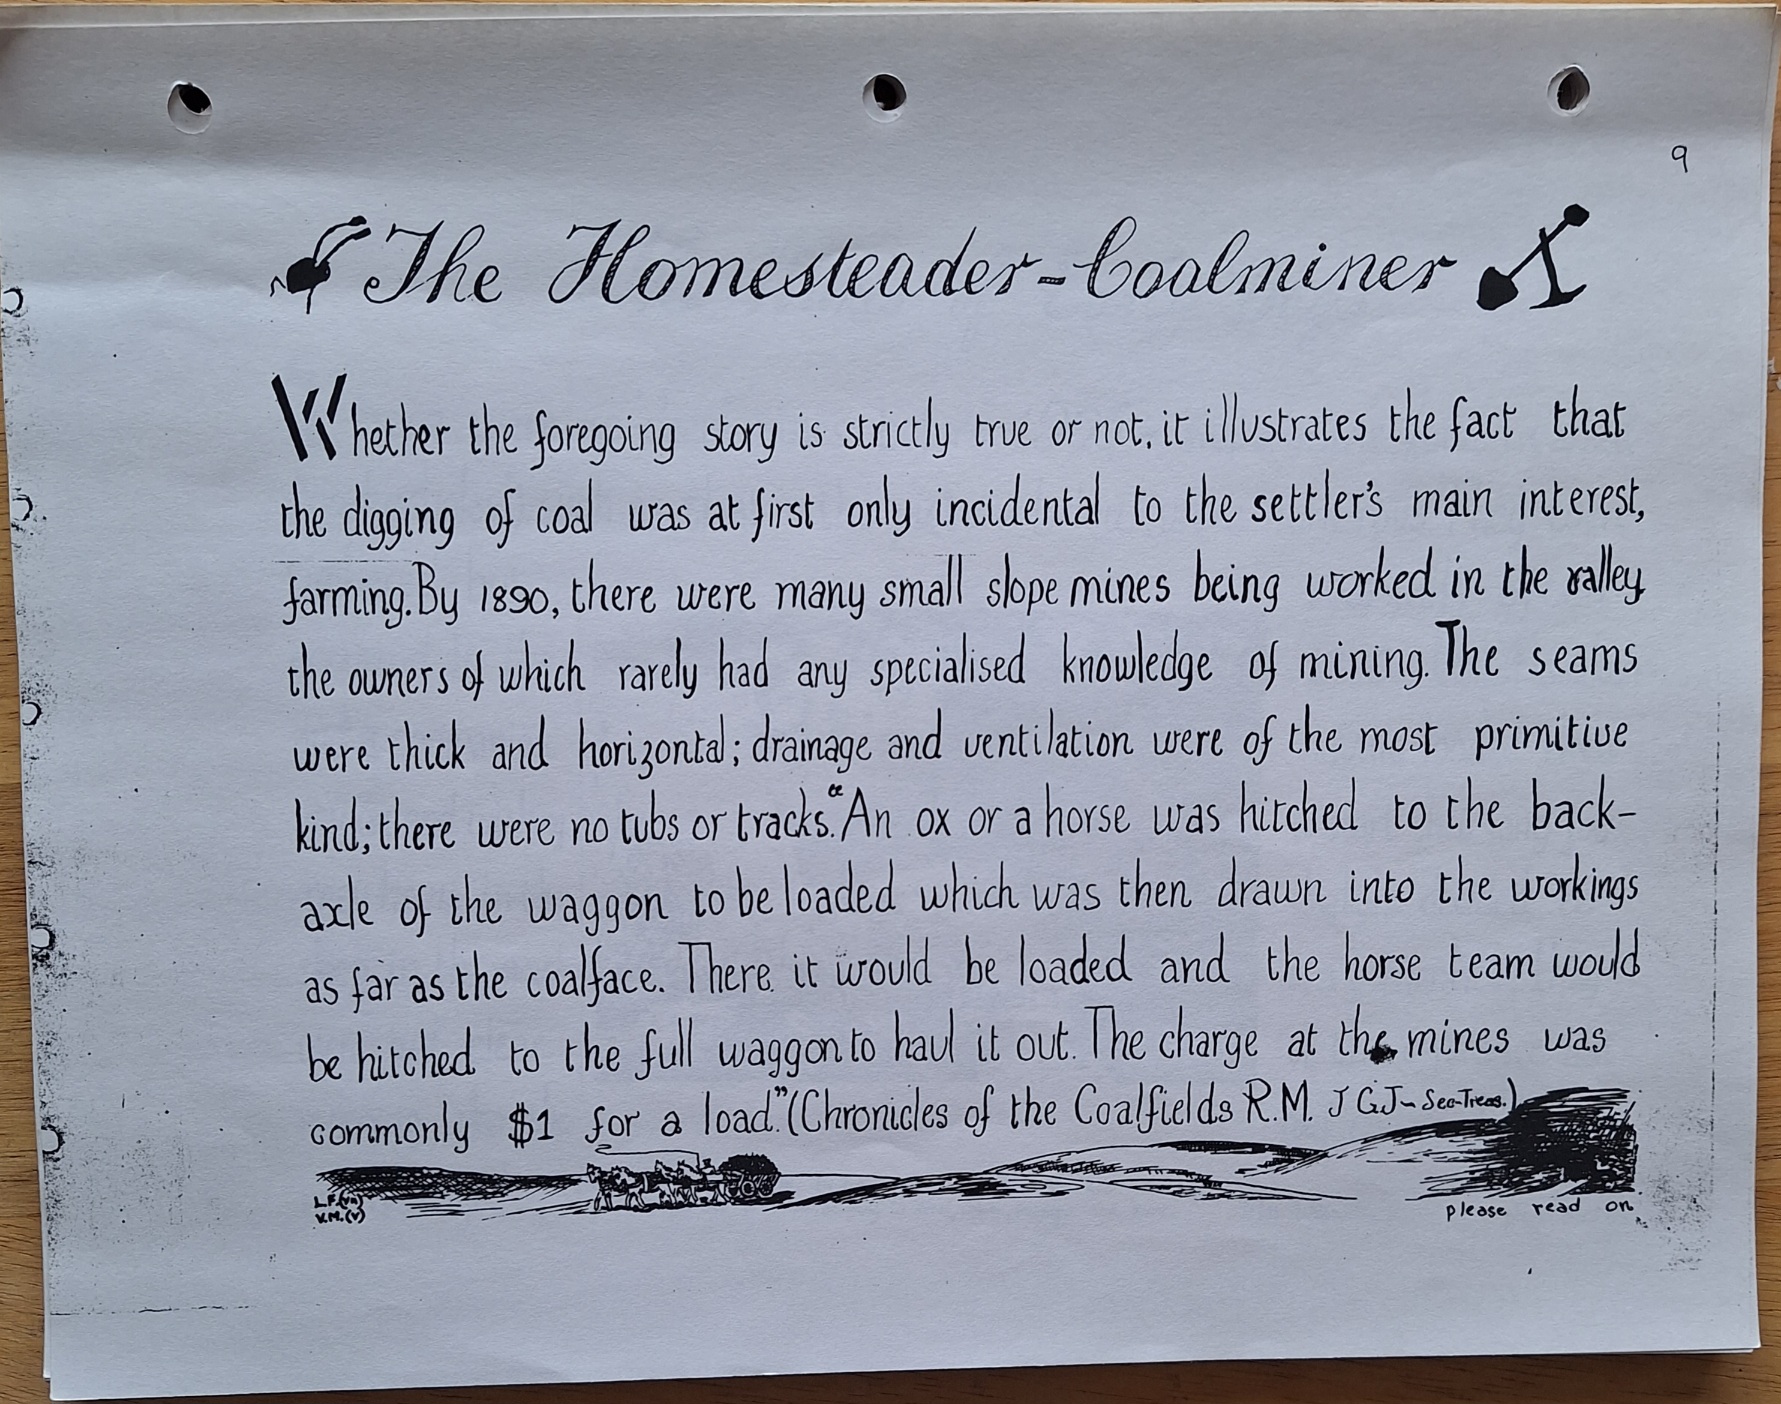 9
The Homesteader-Coalminer
Whether the foregoing story is strictly true or not, it illustrates the fact that
the digging of coal was at first only incidental to the settler's main interest,
farming. By 1890, there were many small slope mines being worked in the valley
the owners of which rarely had any specialised knowledge of mining. The seams
were thick and horizontal; drainage and ventilation were of the most primitive
kind; there were no tubs or tracks. "An ox or a horse was hitched to the back-
axle of the waggon to be loaded which was then drawn into the workings
as far as the coalface. There it would be loaded and the horse team would
be hitched to the full waggon to haul it out. The charge at the mines was
commonly $1 for a load." (Chronicles of the Coalfields R.M. J GJ- Sec-Treas.)
L.F. (vn)
V.M. (v)
please read on